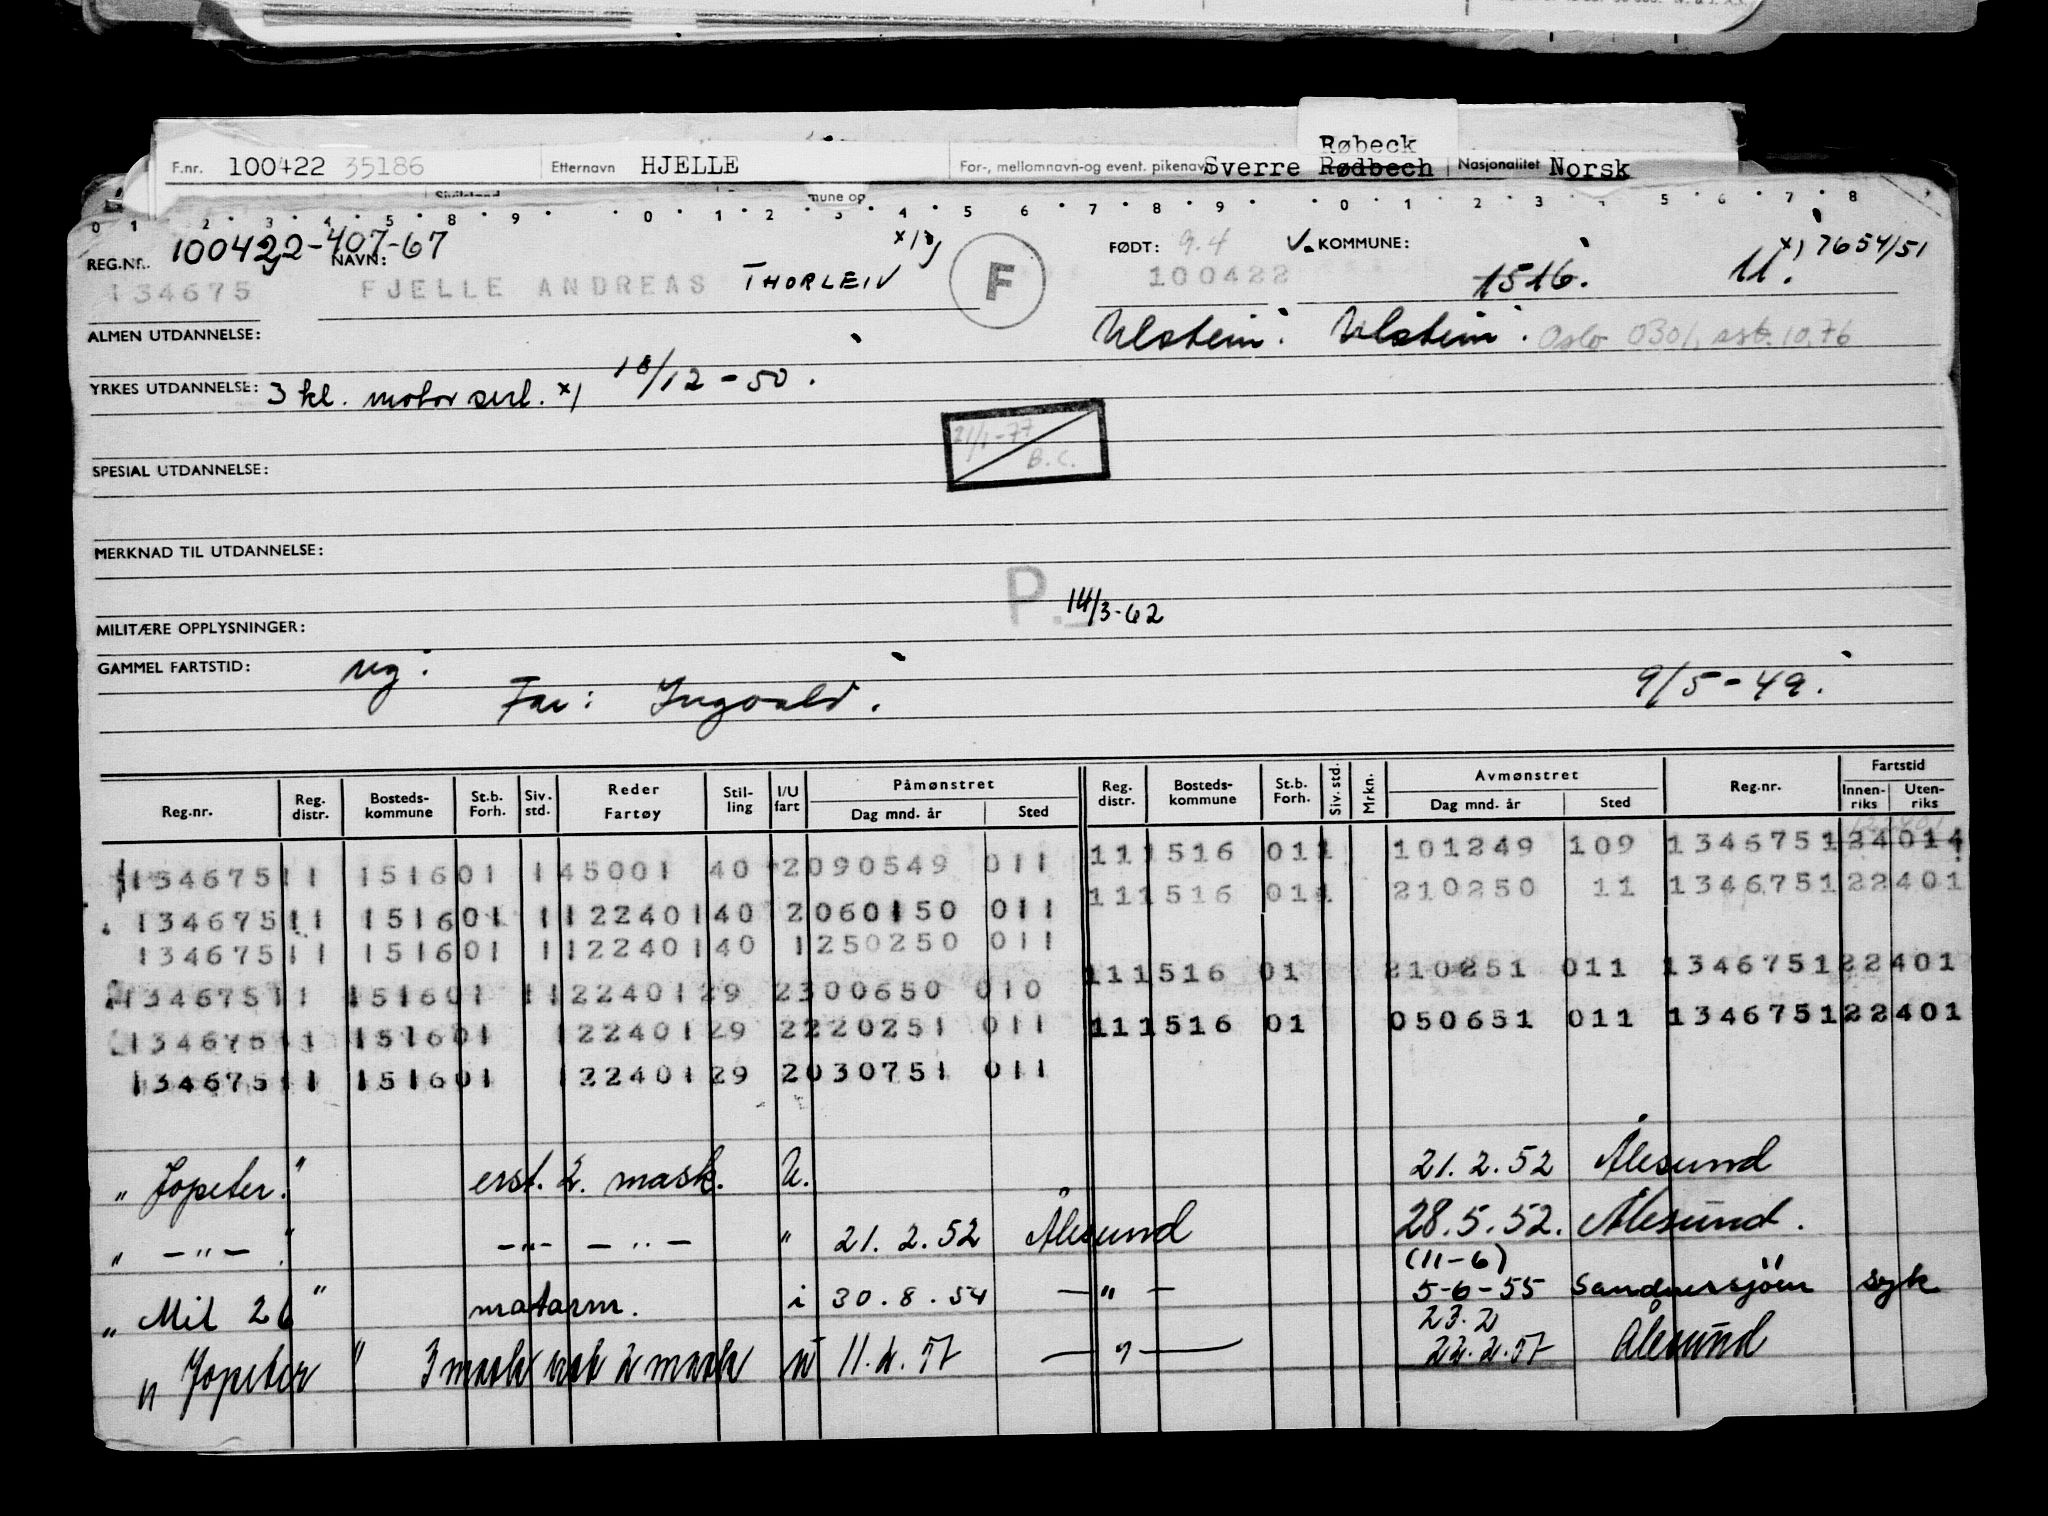 F.nr. 100422 35186 Etternavn HJELLE For-, mellomnavn-og event. pikenavn Sverre Rødbech Røbeck Nasjonalitet Norsk
mune og
0 1 2 3 4 5 8 9 0 1 2 3 4 5 6 7 8 9 0 1 2 3 4 5 6 7 8
REG.NR. 100422-407-67 NAVN: x1) FØDT: 9.4 V. KOMMUNE: x) 7654/51
134675 FJELLE ANDREAS THORLEIV F 100422 1516. 11.
ALMEN UTDANNELSE: Ulstein. Ulstein. Oslo 0301, 10.76
YRKES UTDANNELSE: 3 kl. motor sert. x) 18/12-50.
21/1-77
B.C.
SPESIAL UTDANNELSE:
MERKNAD TIL UTDANNELSE:
P. 14/3-62
MILITÆRE OPPLYSNINGER:
GAMMEL FARTSTID: ug.
Far: Ingvald. 9/5-49.
Reg.nr. Reg. distr. Bosteds-kommune St.b. Forh. Siv. std. Reder Fartøy Stil-ling I/U fart Påmønstret Dag mnd. år Sted Reg. distr. Bosteds-kommune St.b. Forh. Siv. std. Mrkn. Avmønstret Dag mnd. år Sted Reg.nr. Fartstid Innen-riks Uten-riks
13467511 151601 145001 40 2090549 011 111516 011 101249 109 134675124014
13467511 151601 11224014​0 2060150 011 111516 011 210250 11 134675122401
13467511 151601 1122401​40 1250250 011
13467511 151601 112240129 2300650 010 111516 01 210251 011 134675122401
13467511 151601 12240129 2220251 011 111516 01 050651 011 134675122401
13467511 151601 12240129 2030751 011
" Jopeter." erst. 2. mask. U. 21.2.52 Ålesund
" -"- " -"- -"- " 21.2.52 Ålesund 28.5.52. Ålesund.
(11-6)
" Mil 26 " matarm. i 30.8.54 -"- 5-6-55 Sandnessjøen syk
23.2
" Jopeter " 3 mask 2 mask u 11.2.57 -"- 22.2.57 Ålesund